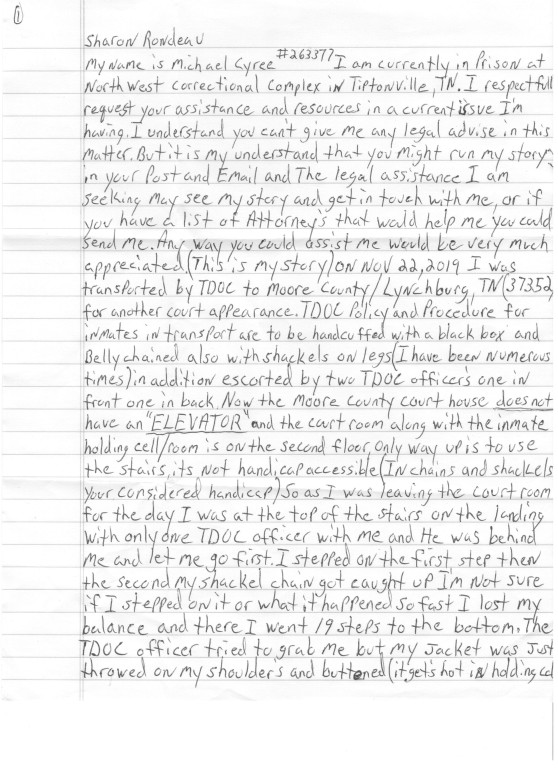 ①
Sharon Rondeau
My Name is Michael Cyree #263377 I am currently in Prison at
North West correctional complex in Tiptonville, TN. I respectfull
request your assistance and resources in a current issue I'm
having. I understand you can't give me any legal advise in this
matter. But it is my understand that you might run my story
in your Post and Email and The legal assistance I am
seeking May see my story and get in touch with me, or if
you have a list of Attorney's that would help me you could
send me. Any way you could assist me would be very much
appreciated. (This is my story) ON NOV 22, 2019 I was
transported by TDOC to Moore County/Lynchburg, TN (37352
for another court appearance. TDOC Policy and Procedure for
inmates in transport are to be handcuffed with a black box and
Belly chained also with shackels on legs (I have been Numerous
times) in addition escorted by two TDOC officer's one in
front one in back. Now the Moore County court house does not
have an "ELEVATOR" and the court room along with the inmate
holding cell/room is on the second floor, only way up is to use
the stairs, its Not handicap accessible (In chains and shackels
your considered handicap) So as I was leaving the court room
for the day I was at the top of the stairs on the landing
with only one TDOC officer with me and He was behind
me and let me go first. I stepped on the first step then
the second my shackel chain got caught up I'm Not sure
if I stepped on it or what it happened so fast I lost my
balance and there I went 19 steps to the bottom. The
TDOC officer tried to grab me but my Jacket was Just
throwed on my shoulder's and buttened (it gets hot in holding cel